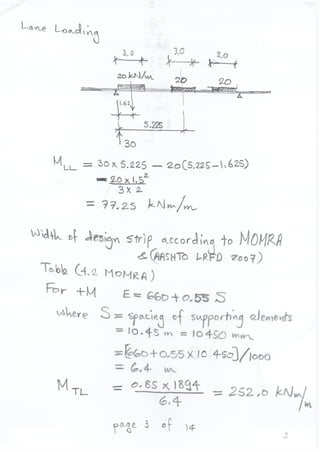 Lane Loading
3.0 3.0 3.0
20 kN/m 20 20
1.62
5.225
30
M_LL = 30 x 5.225 - 20(5.225-1.625)
- 20 x 1.5²
3 x 2
= 77.25 kNm/m
Width of design strip according to MOMRA
& (AASHTO LRFD 2007)
Table (4.2 MOMRA)
For +M E = 660 + 0.55 S
where S = spacing of supporting elements
= 10.45 m = 10450 mm
= [660 + 0.55 x 10450]/1000
= 6.4 m
M_TL = 0.85 x 1894 = 252.0 kNm/m
6.4
page 3 of 14
3